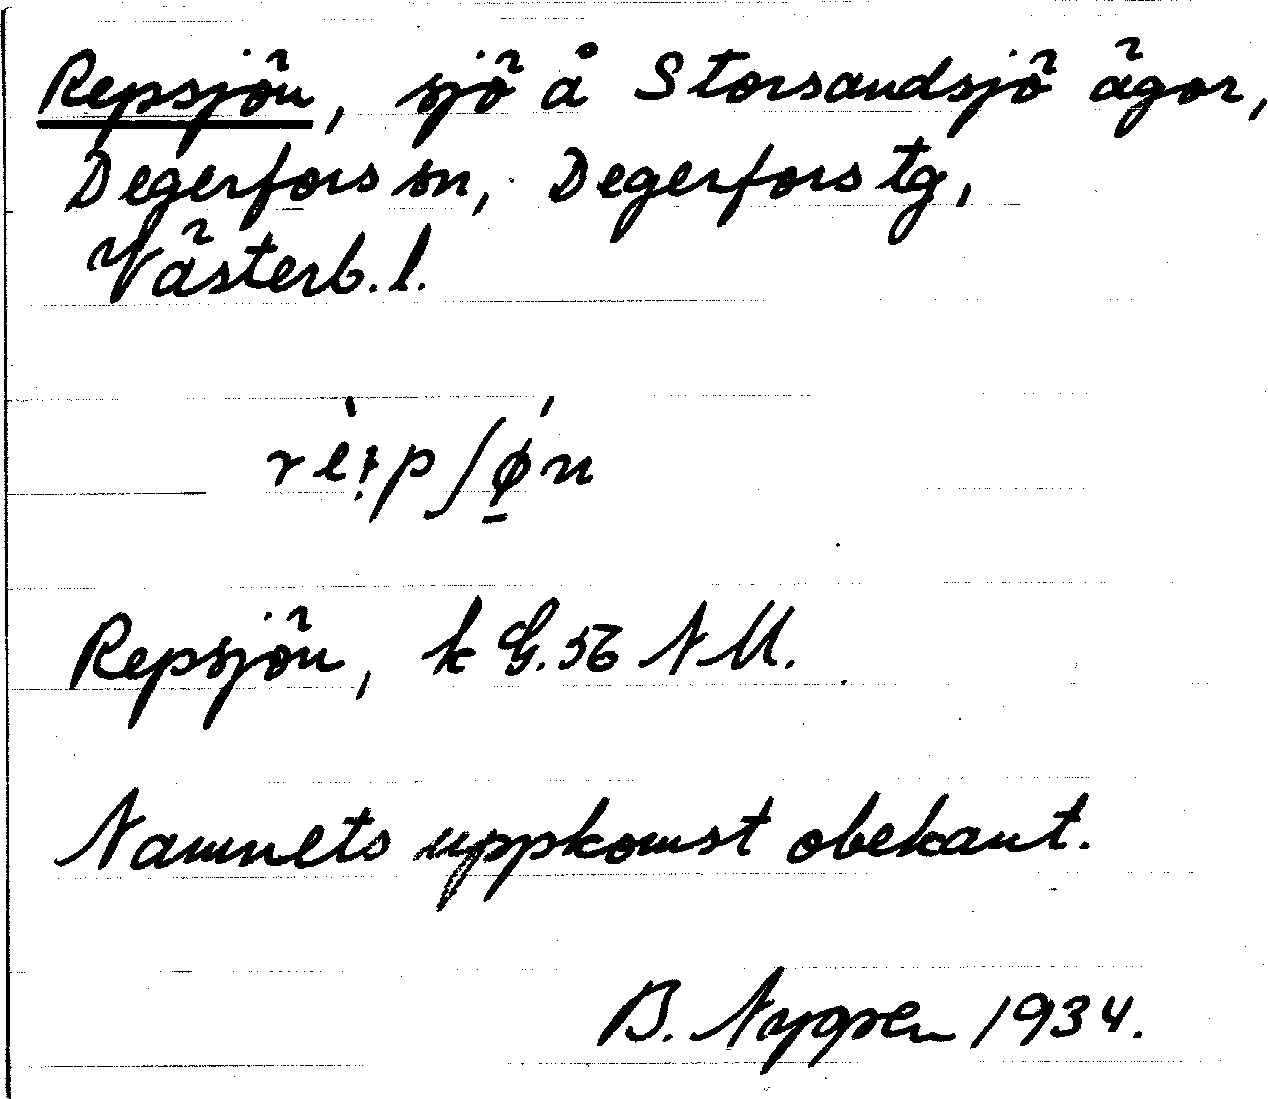 Repsjön, sjö å Storsandsjö ägor,
Degerfors sn, Degerfors tg,
Västerb. l.
Repsjön, k G. 56 NM.
Namnets uppkomst obekant.
B. Nygren 1934.